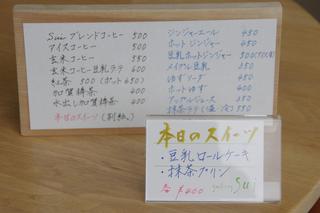 Sui ブレンドコーヒー 500
アイスコーヒー 500
玄米コーヒー 500
玄米コーヒー豆乳ラテ 600
紅茶 500 (ポット650)
加賀棒茶 400
水出し加賀棒茶 400
本日のスイーツ (別紙)
ジンジャーエール 450
ホットジンジャー 450
豆乳ホットジンジャー 500
メイプル豆乳 350
ゆずソーダ 450
ホットゆず 400
アップルジュース 350
抹茶ラテ(温・冷) 550
本日のスイーツ
・豆乳ロールケーキ
・抹茶プリン
各 ¥400
gallery sui